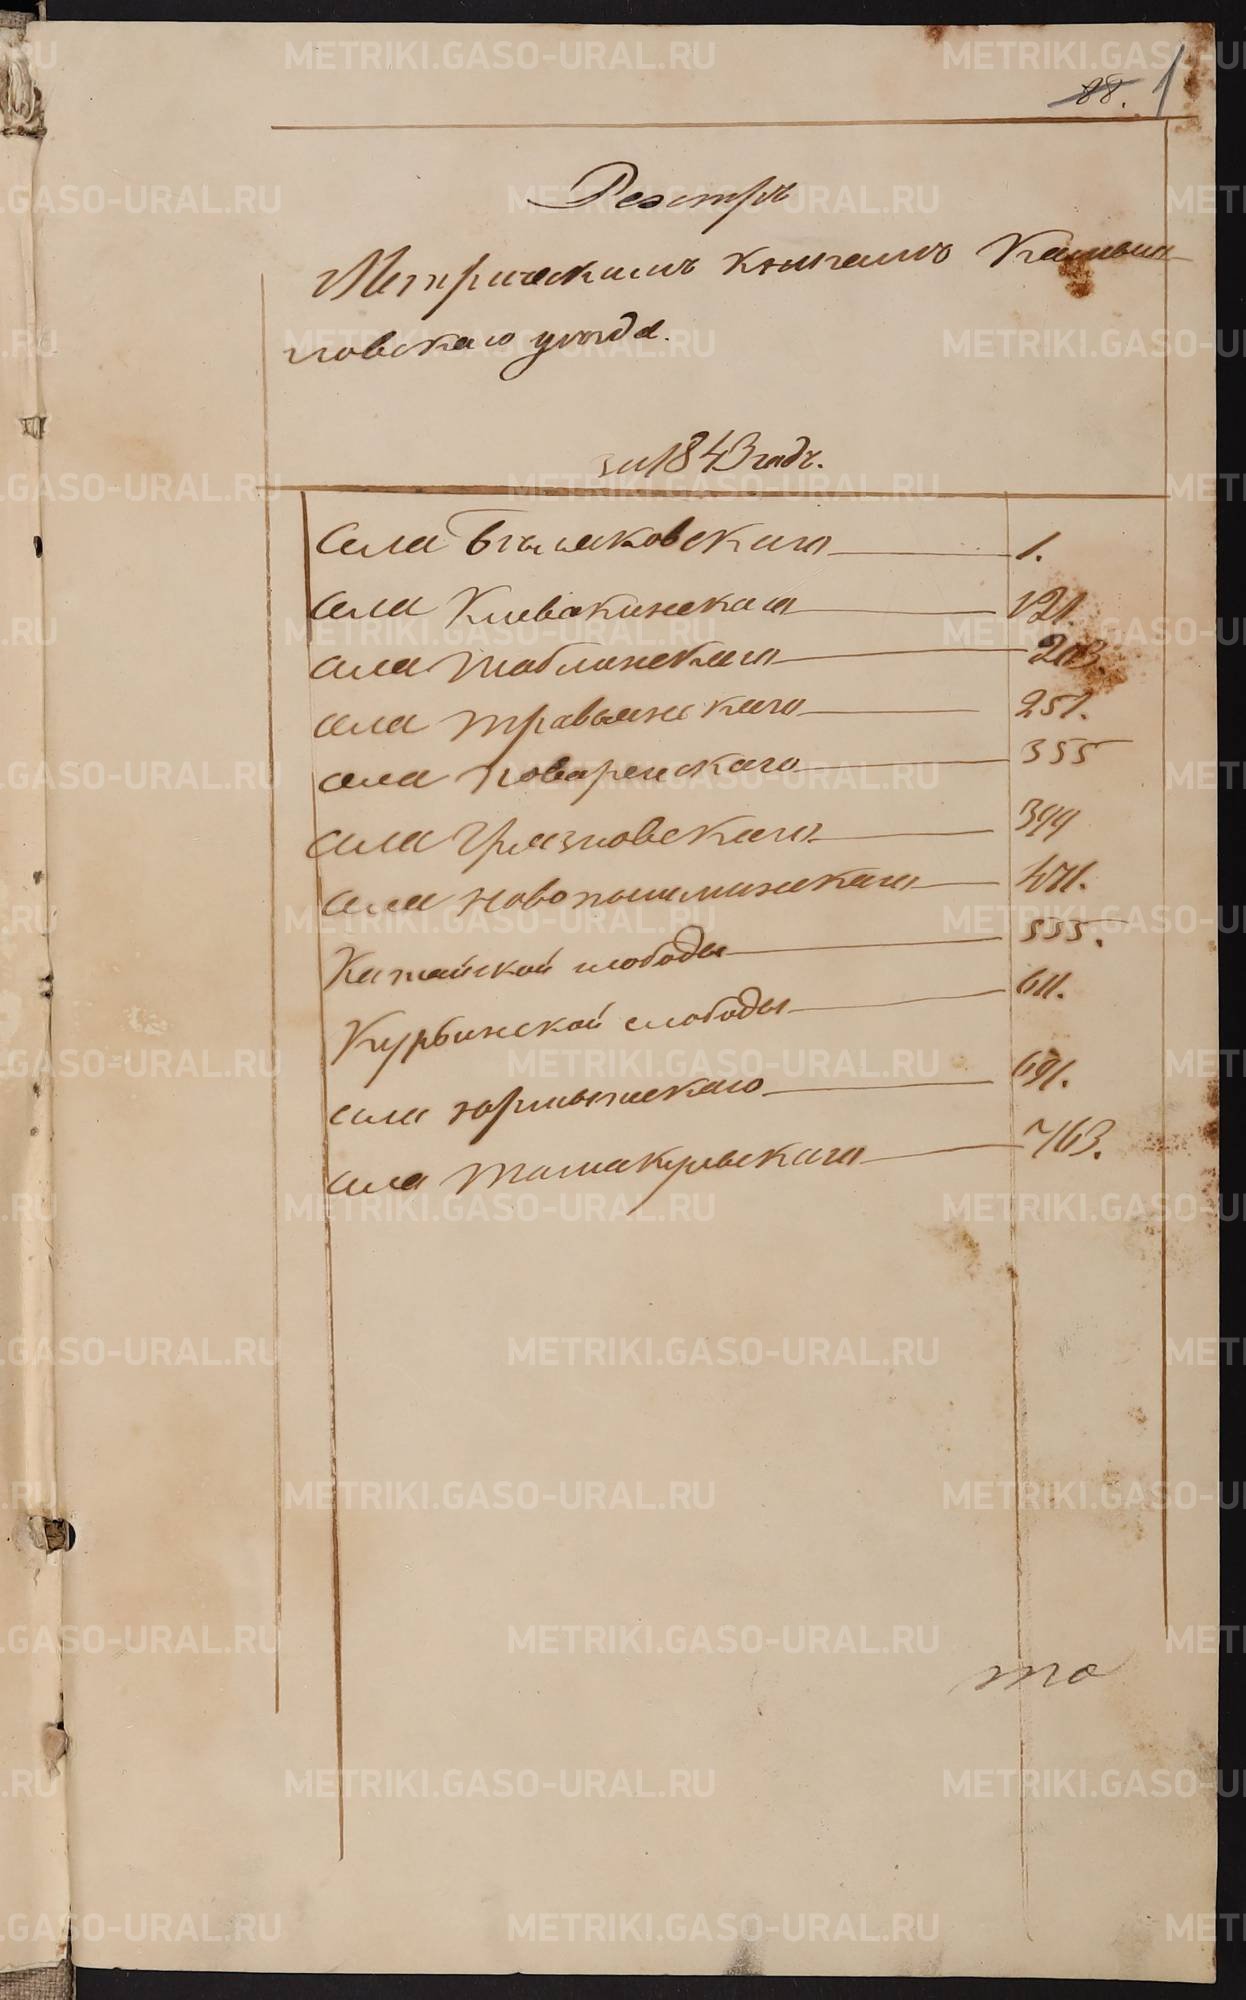 88. 1
Реэстръ
Метрическимъ книгамъ Камыш-
ловскаго уезда.
за 1843 годъ.
села Беляковскаго 1.
села Клевакинскаго 121.
села Таблинскаго 203.
села Травянскаго 251.
села Поваренскаго 355
села Грязновскаго 399
села Новопышминскаго 471.
Катайской слободы 555.
Курьинской слободы 611.
села Юрмытскаго 691.
села Ташакульскаго 763.
то
METRIKI.GASO-URAL.RU